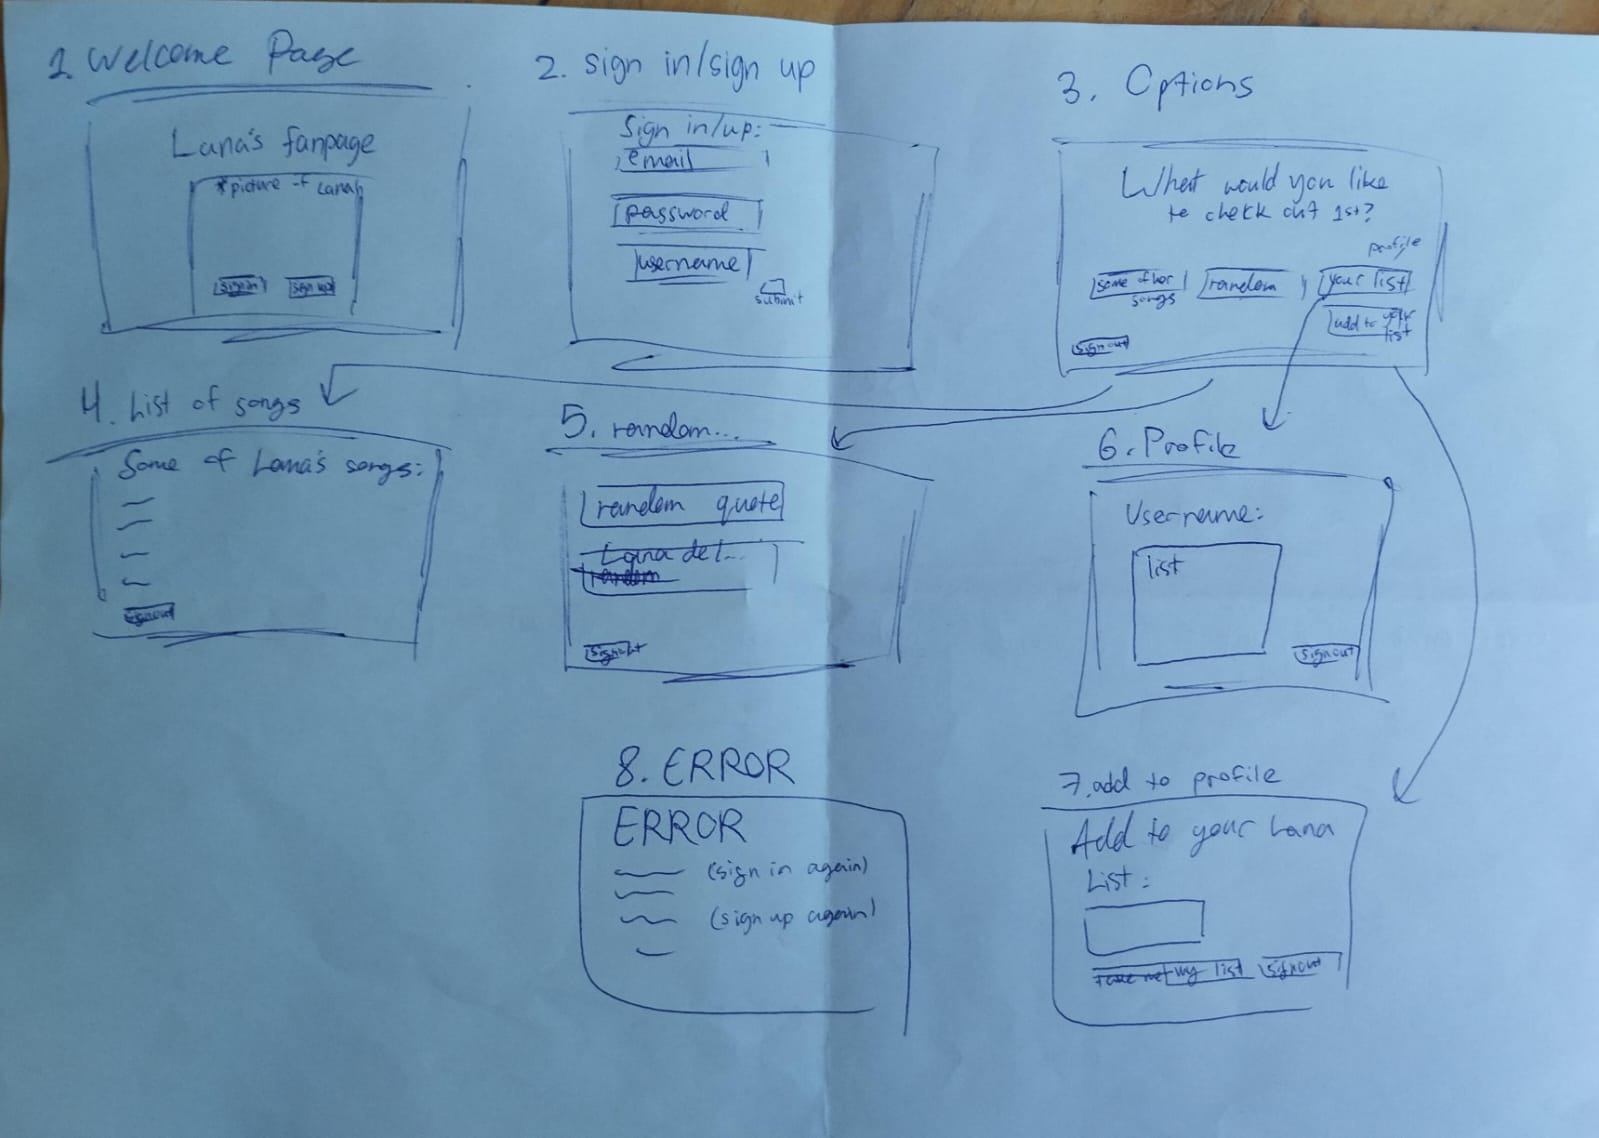 1. Welcome Page
Lana's fanpage
*picture of Lana
sign in sign up
2. sign in/sign up
Sign in/up:
email
password
username
submit
3. Options
What would you like
to check out 1st?
profile
some of her
songs
random
your list
add to your
list
sign out
4. List of songs
Some of Lana's songs:
signout
5. random...
random quote
Lana del...
random
signout
6. Profile
Username:
list
signout
8. ERROR
ERROR
(sign in again)
(sign up again)
7. add to profile
Add to your Lana
List:
my list signout